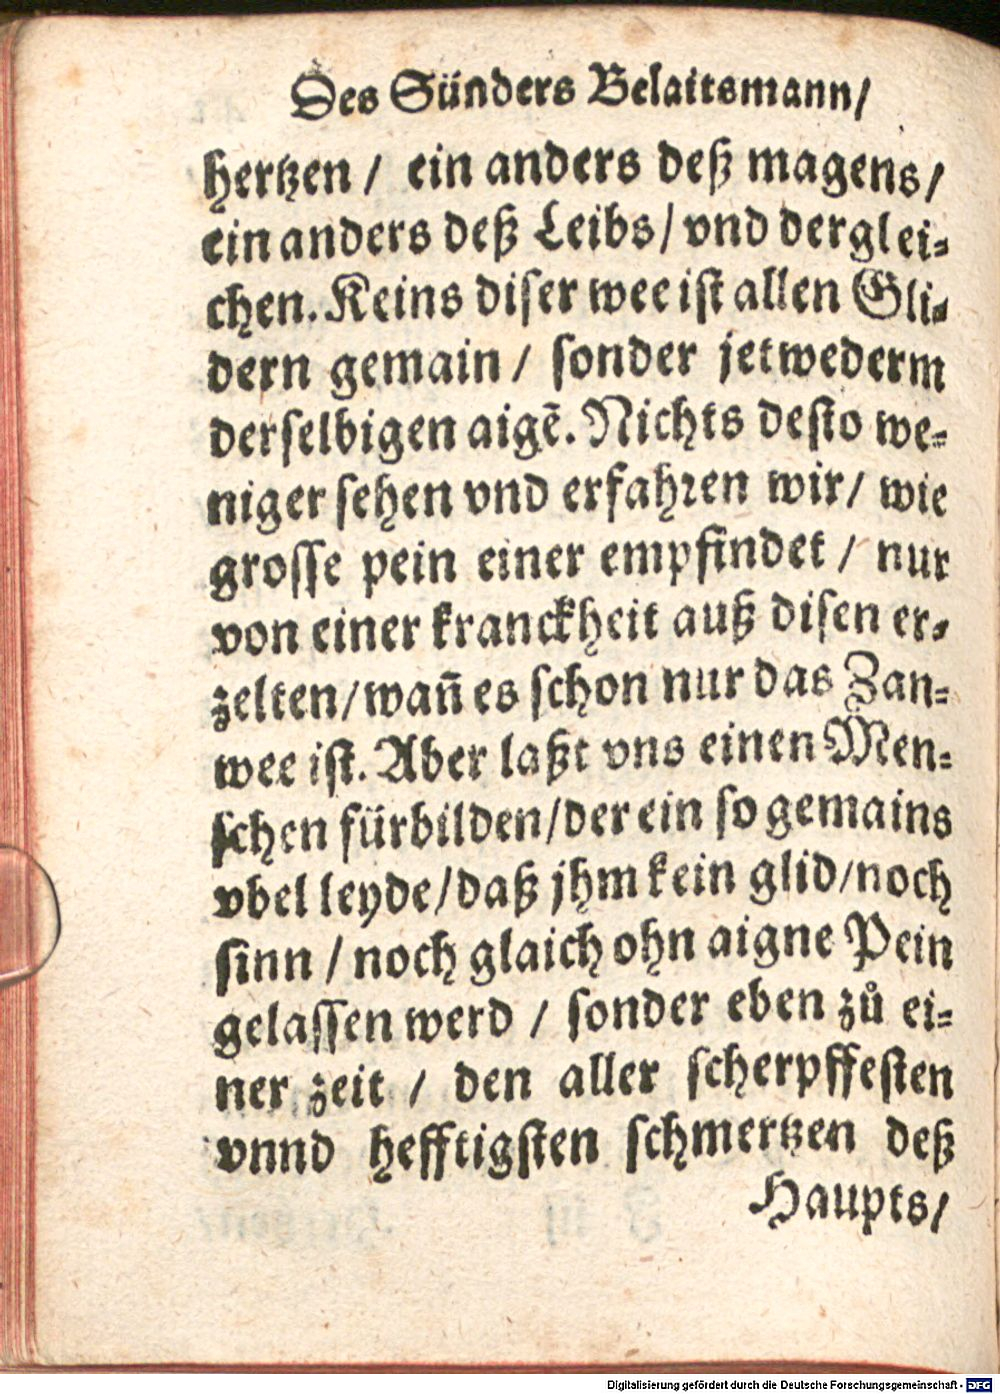 Des Sünders Belaitsmann/
hertzen / ein anders deß magens/
ein anders deß Leibs/ vnd derglei-
chen. Keins diser wee ist allen Gli-
dern gemain / sonder jetwederm
derselbigen aigẽ. Nichts desto we-
niger sehen vnd erfahren wir/ wie
grosse pein einer empfindet / nur
von einer kranckheit auß disen er-
zelten/wañ es schon nur das Zan-
wee ist. Aber laßt vns einen Men-
schen fürbilden/der ein so gemains
vbel leyde/daß jhm kein glid/noch
sinn / noch glaich ohn aigne Pein
gelassen werd / sonder eben zů ei-
ner zeit / den aller scherpffesten
vnnd hefftigsten schmertzen deß
Haupts/
Digitalisierung gefördert durch die Deutsche Forschungsgemeinschaft - DFG